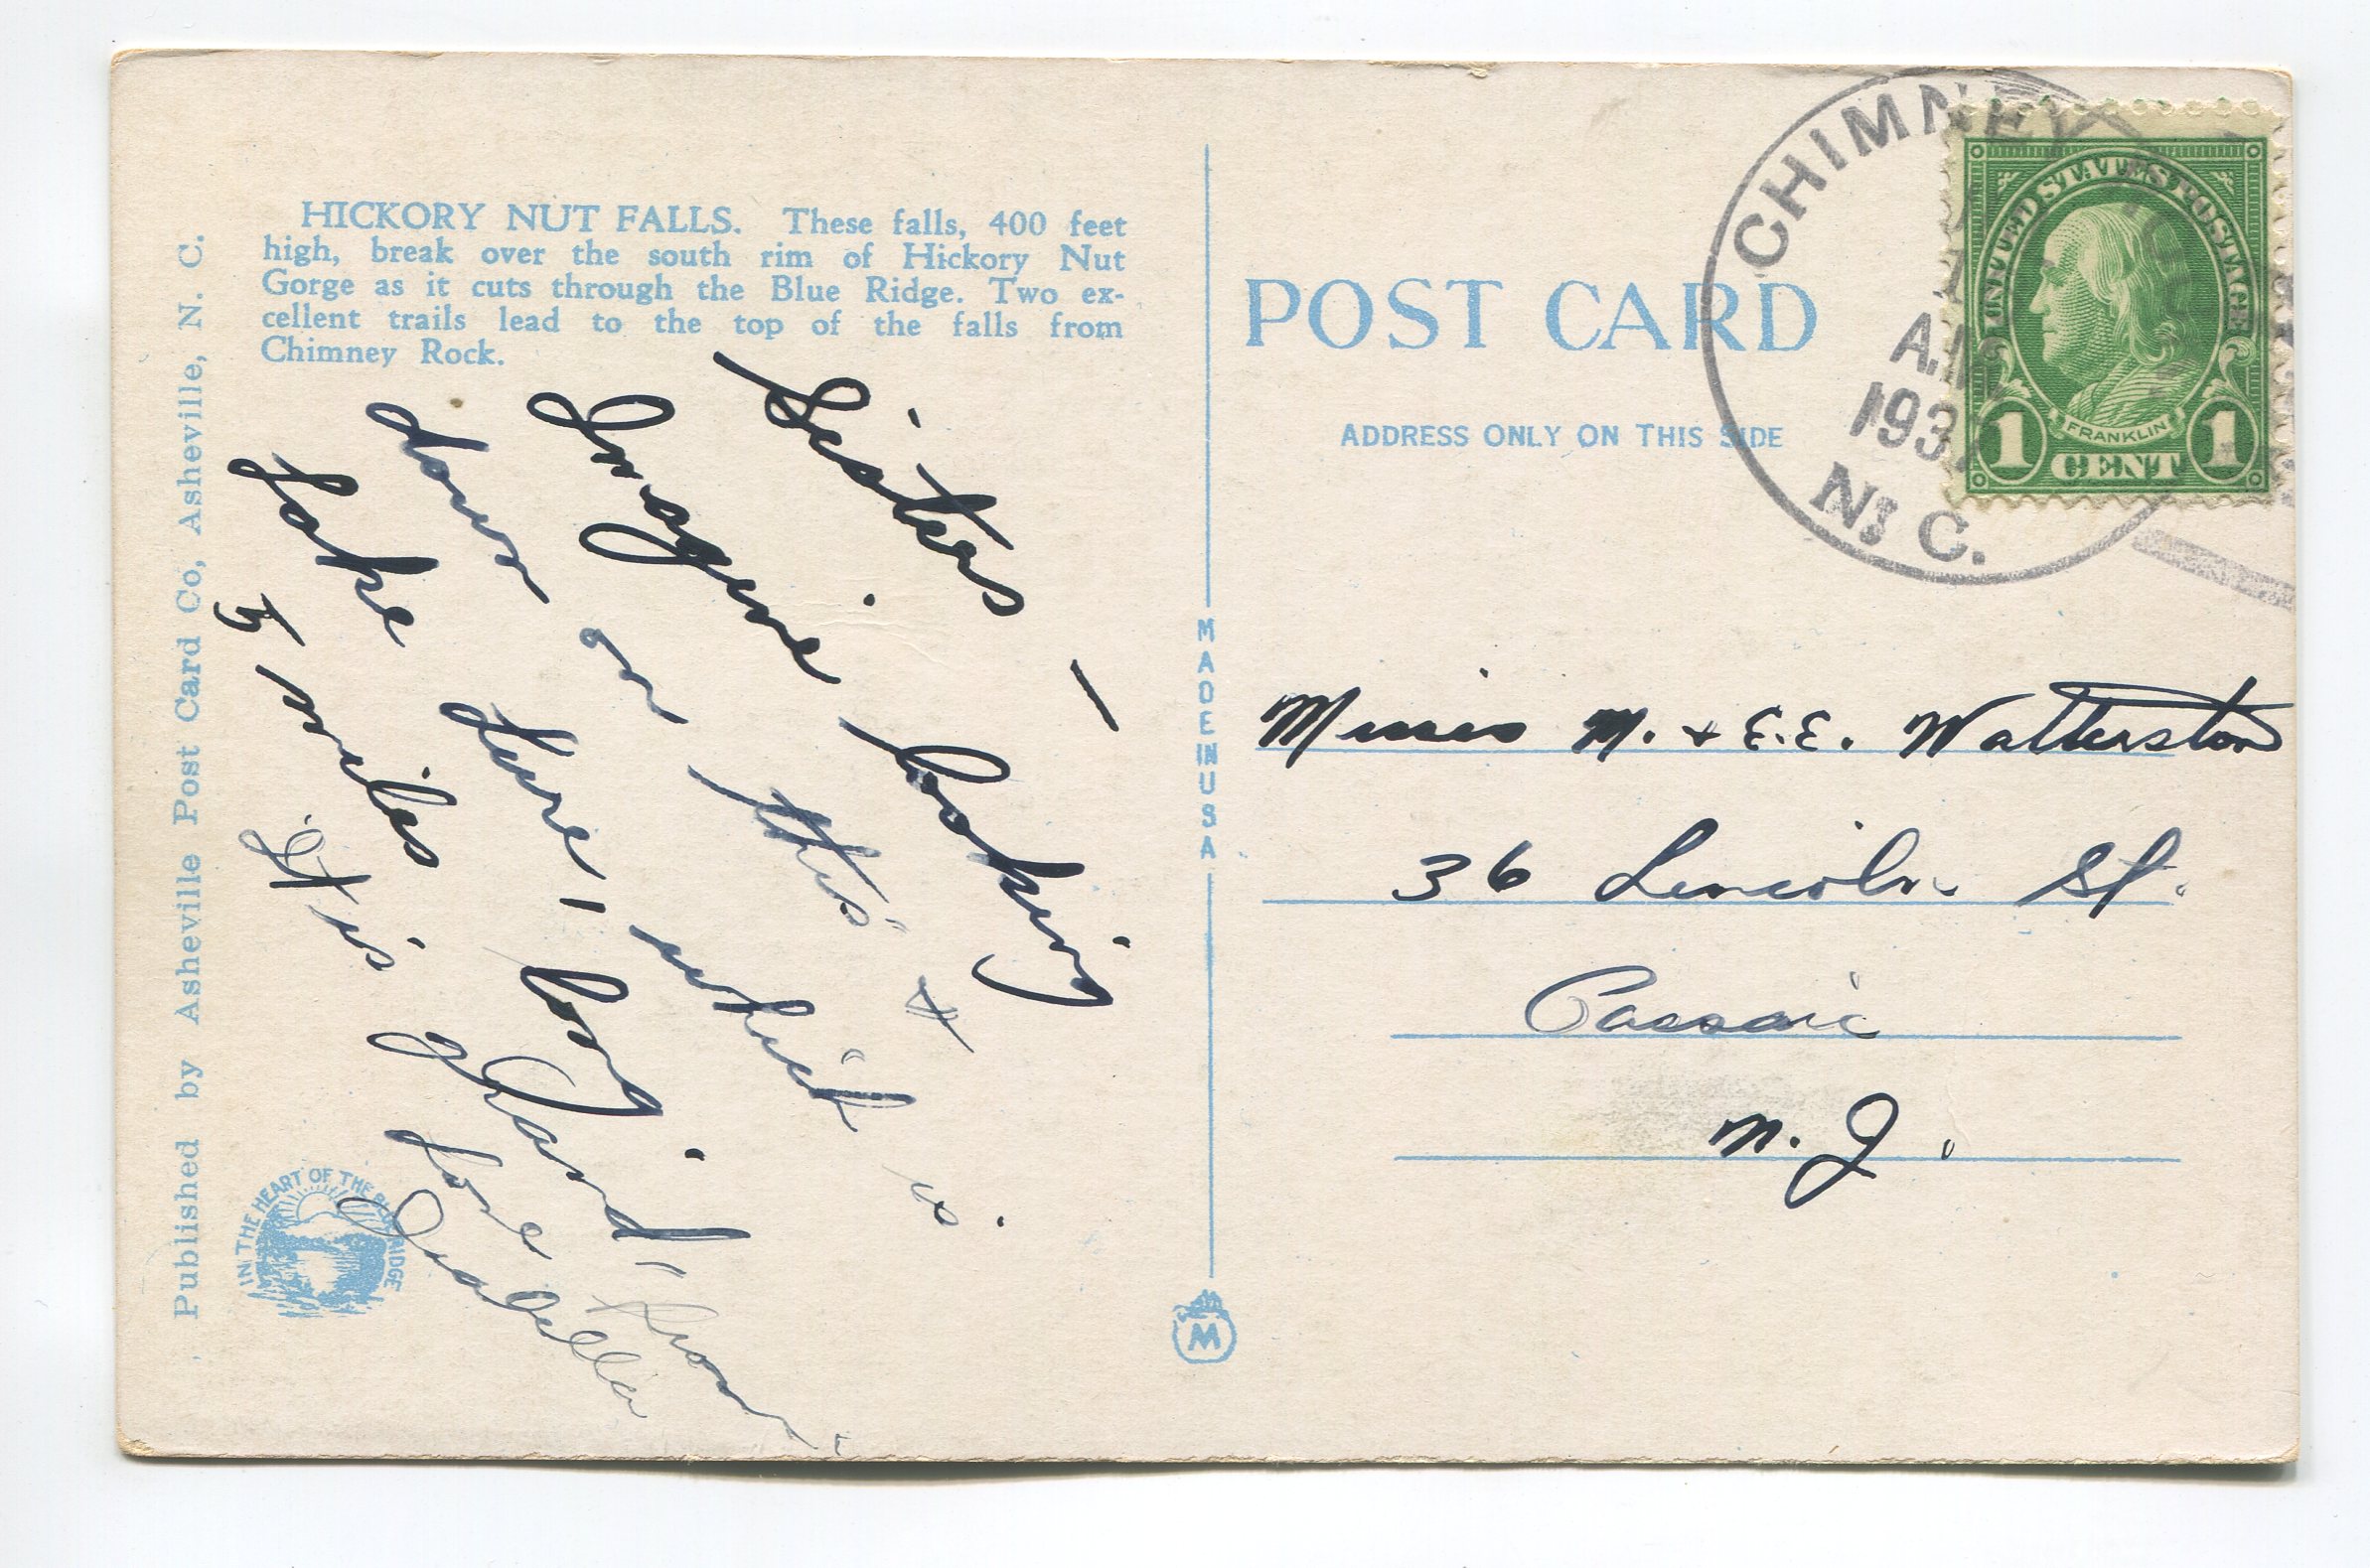 HICKORY NUT FALLS. These falls, 400 feet
high, break over the south rim of Hickory Nut
Gorge as it cuts through the Blue Ridge. Two ex-
cellent trails lead to the top of the falls from
Chimney Rock.
Published by Asheville Post Card Co, Asheville, N. C.
Sisters —
Imagine looking
down on this &
Lake Lure, which is
5 miles long.
It is grand" here
Love
Isabella
IN THE HEART OF THE BLUE RIDGE
MADE IN USA
M
POST CARD
ADDRESS ONLY ON THIS SIDE
CHIMNEY
A.M
193
N. C.
UNITED STATES POSTAGE
FRANKLIN
1 CENT 1
Misses M. & E.E. Watterston
36 Lincoln St.
Passaic
N. J.